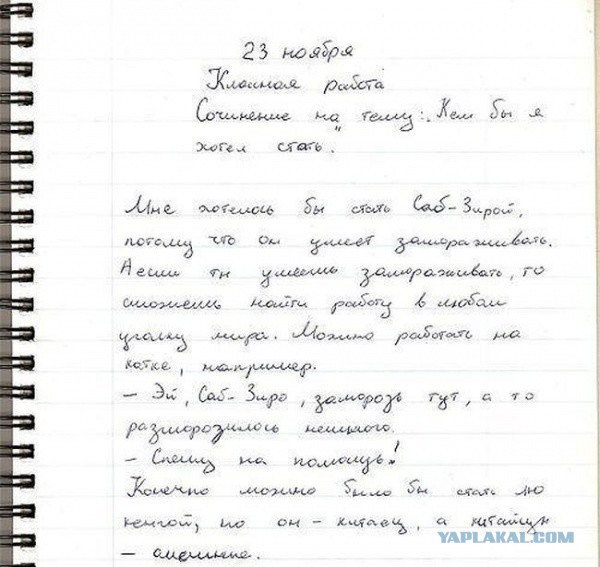 23 ноября
Класная работа
Сочинение на тему: "Кем бы я
хотел стать."
Мне хотелось бы стать Саб-Зирой,
потому что он умеет замораживать.
А если ты умеешь замораживать, то
сможешь найти работу в любом
уголку мира. Можно работать на
катке, например.
– Эй, Саб-Зиро, заморозь тут, а то
разморозилось немного.
– Спешу на помощь!
Конечно можно было бы стать Лю
кенгой, но он – китаец, а китайцы
–
YAPLAKAL.COM